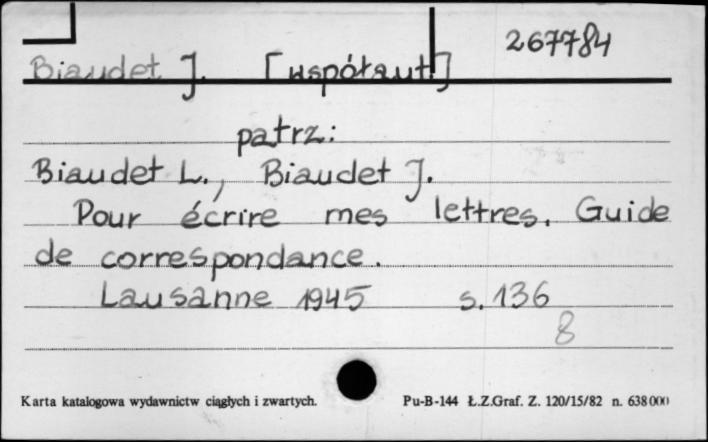 267784
Biaudet J. [współaut]
patrz:
Biaudet L., Biaudet J.
Pour écrire mes lettres. Guide
de correspondance.
Lausanne 1945 s. 136
8
Karta katalogowa wydawnictw ciągłych i zwartych. Pu-B-144 Ł.Z.Graf. Z. 120/15/82 n. 638 000